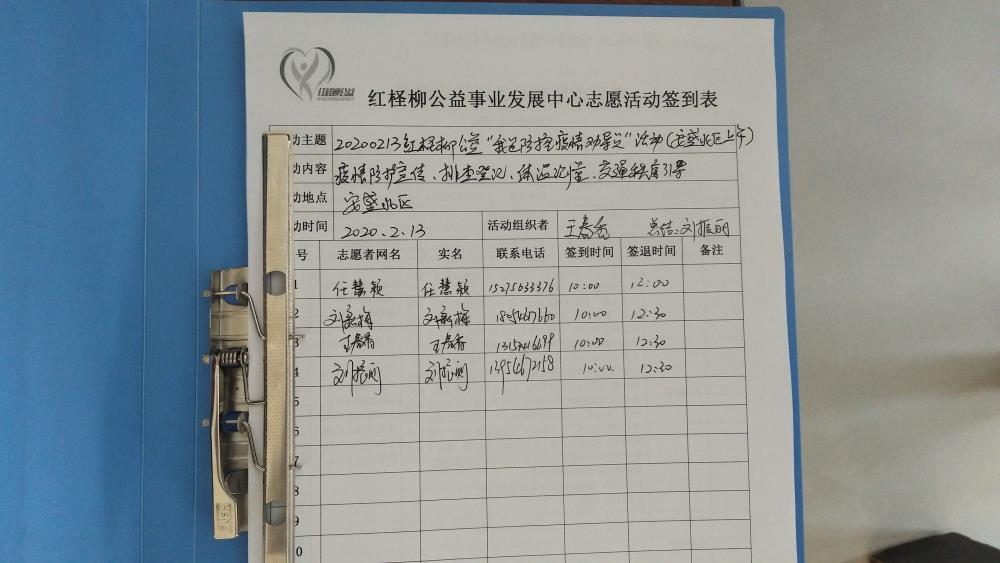 红柽柳公益
红柽柳公益事业发展中心志愿活动签到表
动主题 20200213红柽柳公益“我是防控疫情劝导员”活动(安盛北区上午)
动内容 疫情防护宣传、排查登记、体温测量、交通秩序引导
动地点 安盛北区
动时间 2020.2.13 活动组织者 王春香 总结:刘振丽
号 志愿者网名 实名 联系电话 签到时间 签退时间 备注
1 任慧颖 任慧颖 15275633376 10:00 12:00
2 10:00 12:30
3 王春香 王春香 10:00 12:30
4 刘振丽 刘振丽 13954672158 10:00 12:30
5
6
7
8
9
0